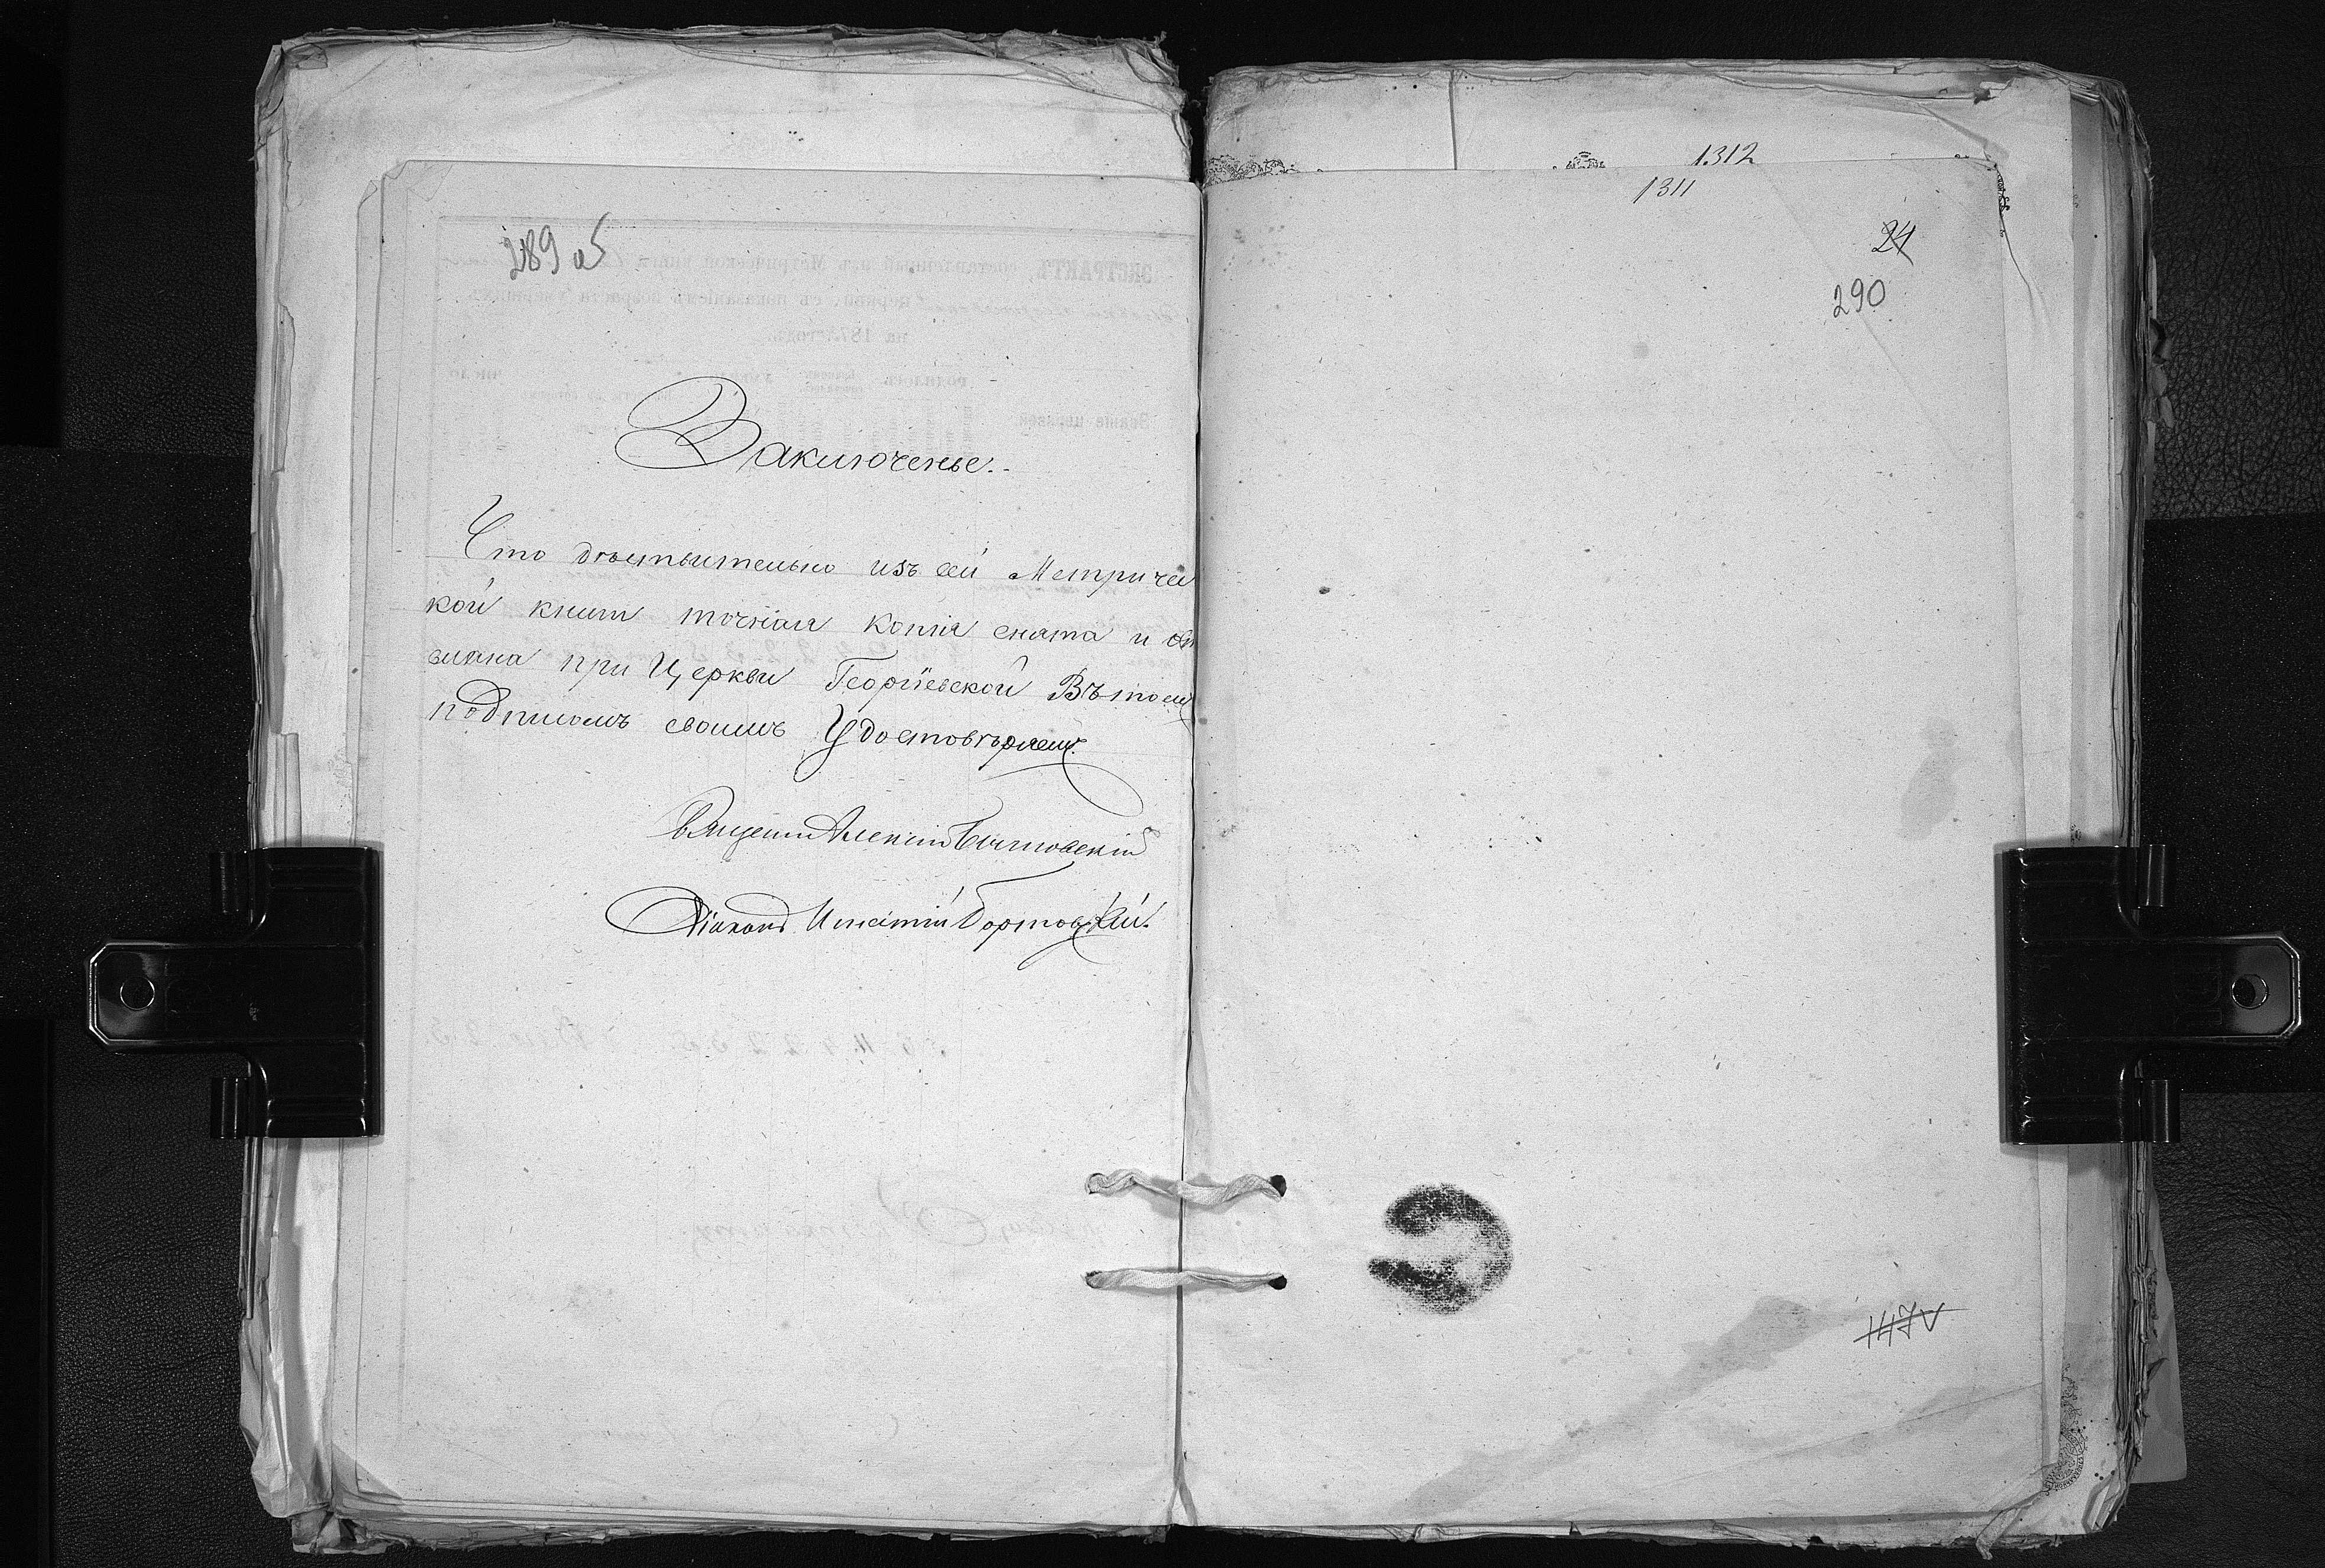 289 об
Заключенье.
Что дѣствительно изъ сей Метричес
кой книги точная копія снята и ос
влана при Церкви Георгіевской Въ томъ
подписомъ своимъ Удостовѣряемъ
Алексій
Діаконъ Игнатій Бортовскій.
1312
1311
24
290
147v